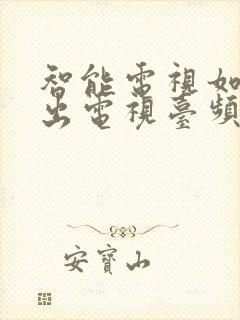 智能電視如
出電視臺頻
安寶山